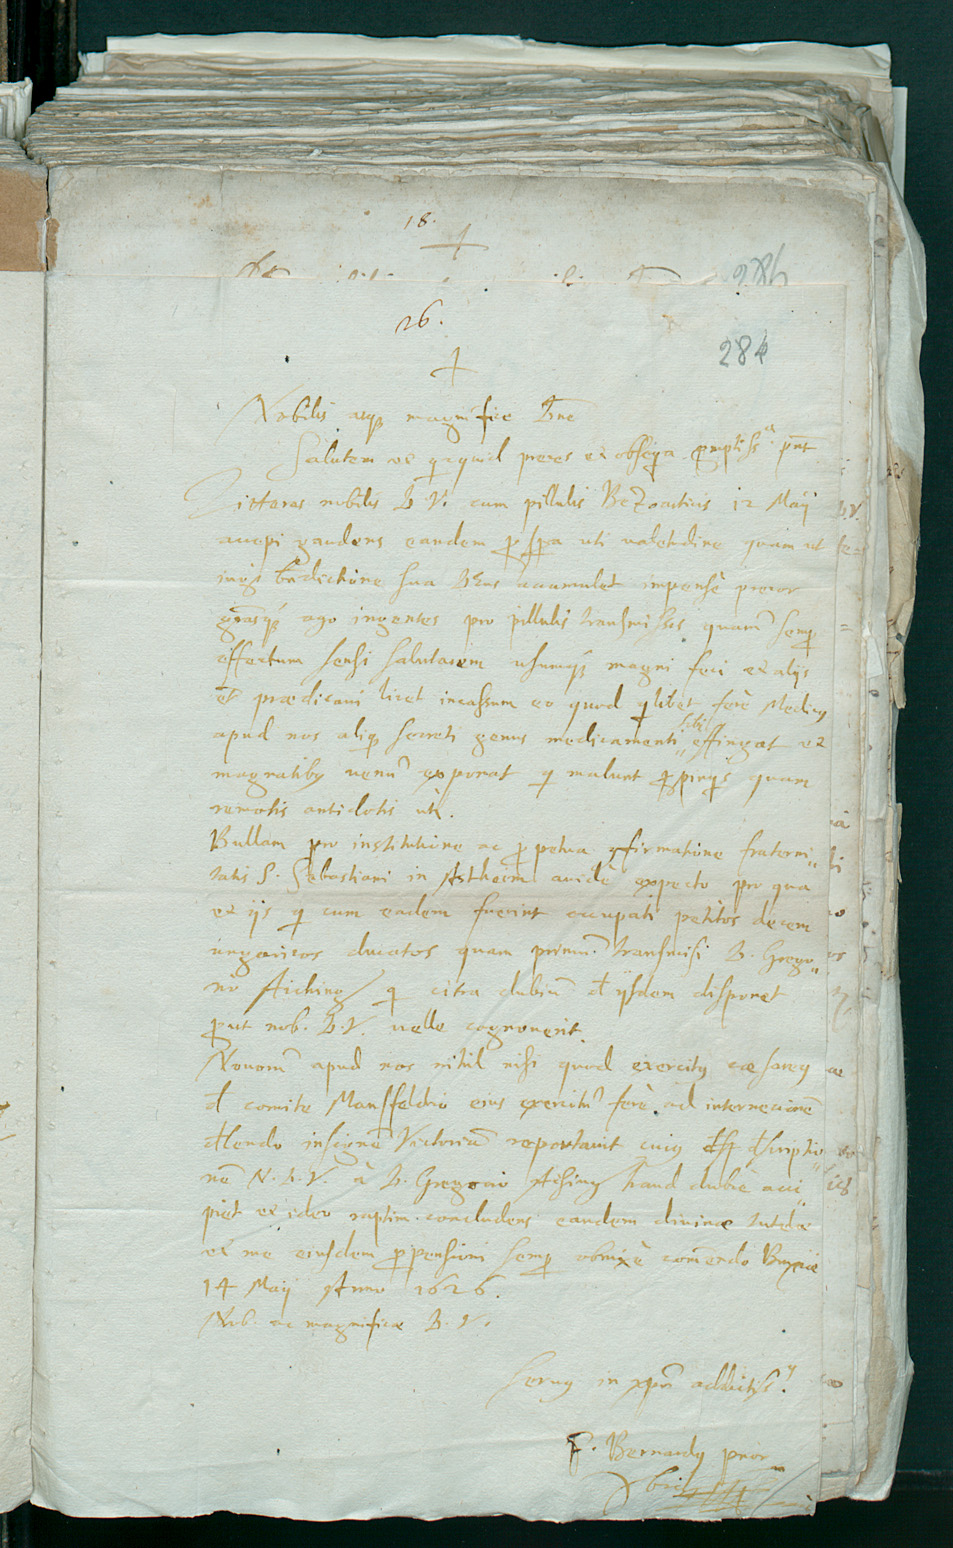 18.
26.
284
Nobilis atq3 magnifice Dne
Salutem ac quicquid preces et obseqia promptiss.a pnt
Litteras nobilis D. V. cum pillulis Bezoarticis 12 Maij
accepi gaudens eandem prospera uti valetudine quam ut
sua Deus accumulet impensè precor
gratiasq3 ago ingentes pro pillulis transmissis quarum semp
effectum sensi salutarem usumq3 magni feci et alijs
et praedicavi licet incassum eo quod quilibet ferè Medicus
apud nos aliq3 secreti genus medicamenti sibi effingat et
magnatibus venum exponat qui malunt propinquis quam
remotis antidotis uti.
Bullam pro institutione ac perpetua confirmatione fraterni„
tatis S. Sebastiani in Astheim avidè expecto pro qua
et ijs qui cum eadem fuerint occupati petitos decem
ungaricos ducatos quam primum transmisi D. Grego„
rio Aiching qui citra dubium de ijsdem disponet
prout nob. D. V. velle cognoverit.
Novorum apud nos nihil nisi quod exercitus caesareus
de comite Mansfeldio eius exercitum ferè ad internecionem
delendo insignem Victoriam reportavit cuius descriptio„
nem N. D. V. à D. Gregorio Aiching haud dubiè acci„
piet et ideo raptim concludens eandem divinae tutelae
et me eiusdem propensioni semp obnixè commendo Buxiae
14 Maij Anno 1626.
Nob. ac magnificae D. V.
Servus in xpo addictiss.9
F. Bernardus prior